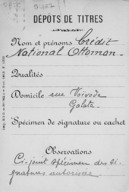 DÉPÔTS DE TITRES
Nom et prénoms Crédit
National Ottoman
Qualités
Domicile rue Voïvoda
Galata
Spécimen de signature ou cachet
Observations
Ci-joint spécimen des si-
gnatures autorisées